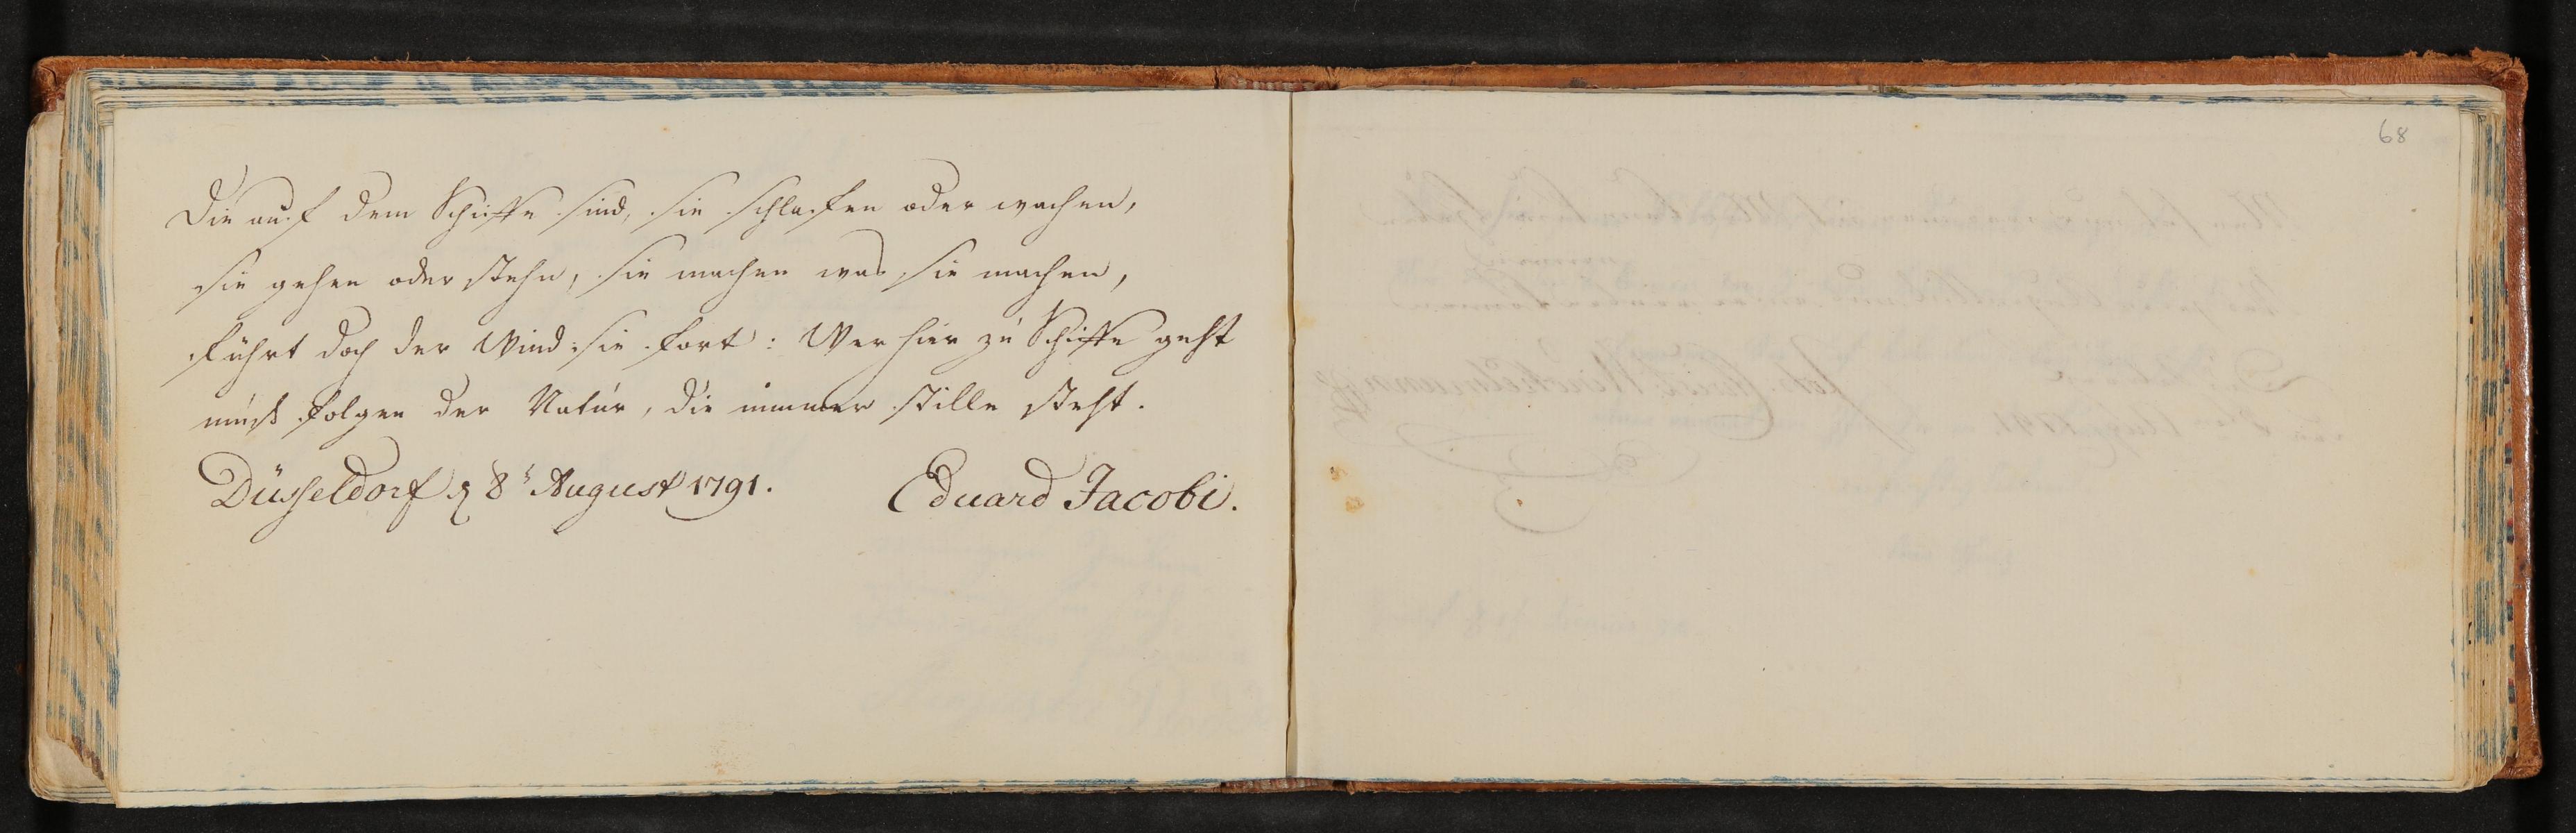 Die auf dem Schiffe sind, sie schlafen oder wachen,
sie gehen oder stehn, sie machen was sie machen,
führt doch der Wind sie fort: Wer hier zu Schiffe geht
muß folgen der Natur, die immer stille steht.
Düsseldorf d 8t August 1791.
Eduard Jacobi.
68